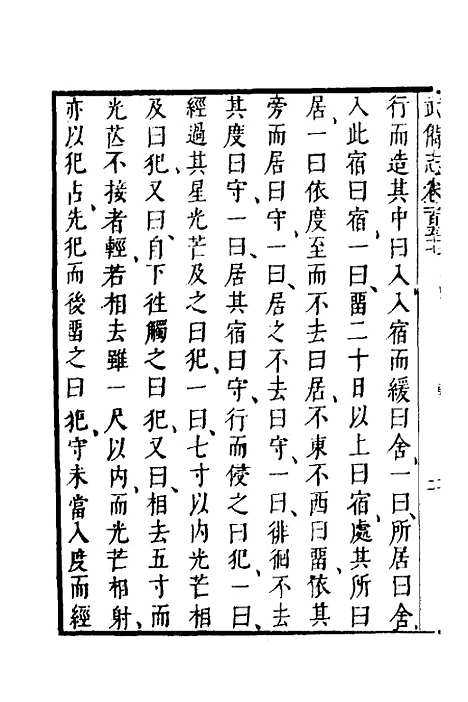 武備志卷一百五十七
行而造其中曰入入宿而緩曰舍、一曰、所居曰舍、
入此宿曰宿、一曰、畱二十日以上曰宿、處其所曰
居、一曰依度至而不去曰居、不東不西曰畱、依其
旁而居曰守、一曰、居之不去曰守、一曰、徘徊不去
其度曰守、一曰、居其宿曰守、行而侵之曰犯、一曰、
經過其星光芒及之曰犯、一曰、七寸以内光芒相
及曰犯、又曰、自下徃觸之曰犯、又曰、相去五寸而
光芒不接者輕、若相去雖一尺以内、而光芒相射、
亦以犯占、先犯而後畱之曰犯、守未當入度而經